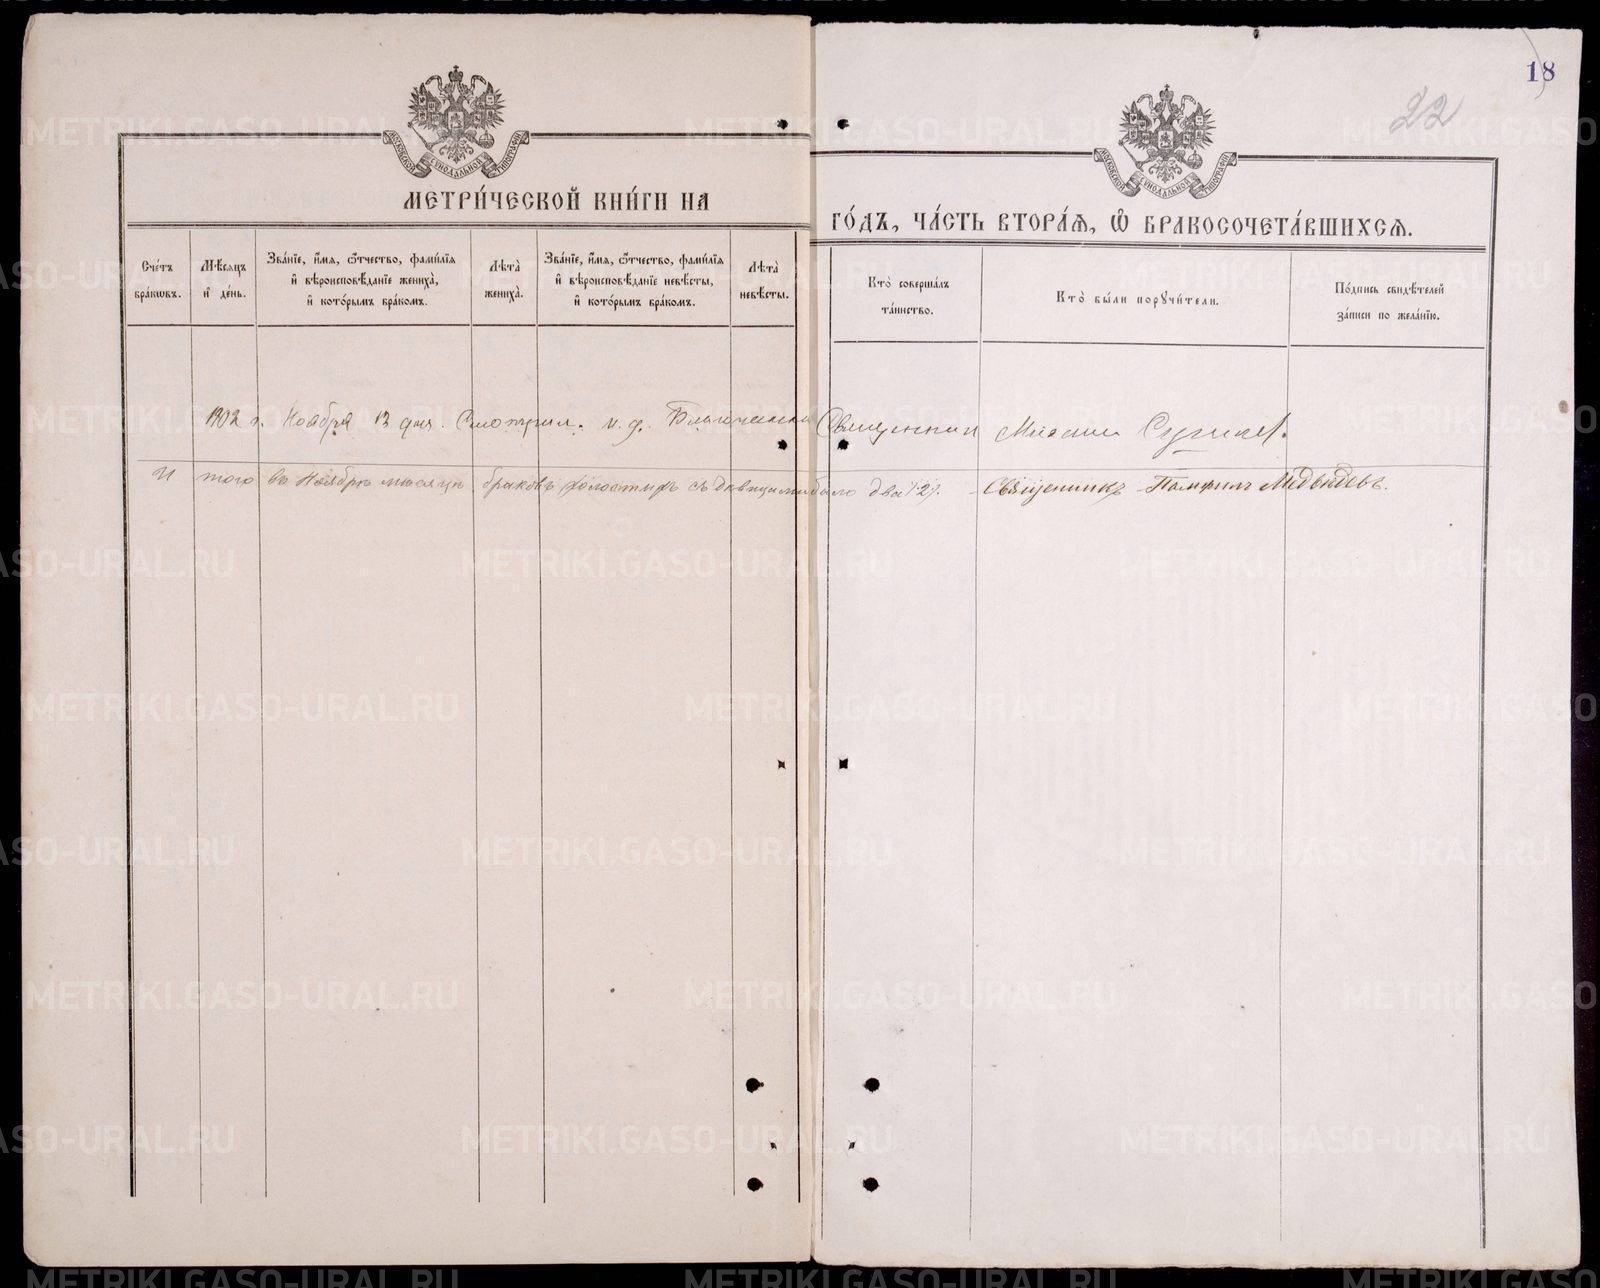 18
22
МОСКОВСКОЙ СѴНОДАЛЬНОЙ ТИПОГРАФІИ
МОСКОВСКОЙ СѴНОДАЛЬНОЙ ТИПОГРАФІИ
МЕТРИ́ЧЕСКОЙ КНИ́ГИ НА ГО́ДЪ, ЧА́СТЬ ВТОРА́Ѧ, Ѽ БРАКОСОЧЕТА́ВШИХСѦ.
Сче́тъ бра́кѡвъ.
Мѣ́сѧцъ и҆ де́нь.
Зва́нїе, и҆́мѧ, ѻ҆́тчество, фами́лїѧ и҆ вѣроисповѣ́данїе жениха̀, и҆ кото́рымъ бра́комъ.
Лѣ́та жениха̀.
Зва́нїе, и҆́мѧ, ѻ҆́тчество, фами́лїѧ и҆ вѣроисповѣ́данїе невѣ́сты, и҆ кото́рымъ бра́комъ.
Лѣ́та невѣ́сты.
Кто̀ соверша́лъ та́инство.
Кто̀ бы́ли порꙋчи́тели.
По́дпись свидѣ́телей за́писи по жела́нїю.
1902 г. Ноября 13 дня. Смотрил. и. д. Благочиннаго Священник Михаил
Итого въ Ноябрѣ мѣсяцѣ браковъ холостыхъ съ дѣвицами было два /2/. Священникъ Памфилъ Медвѣдевъ.
METRIKI.GASO-URAL.RU